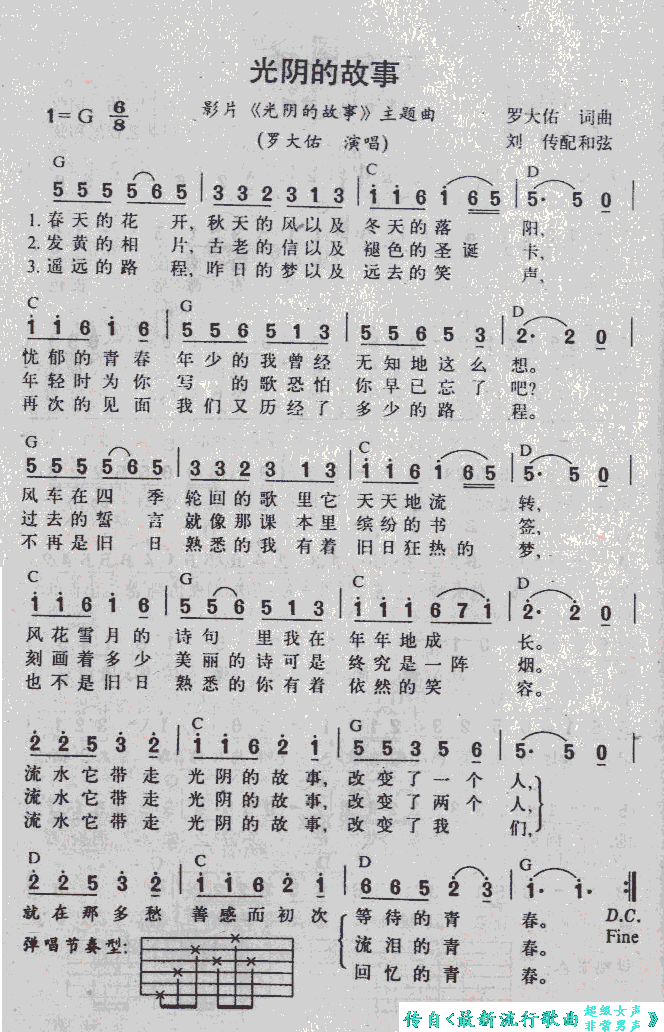 光阴的故事
影片《光阴的故事》主题曲
1=G 6/8
罗大佑 词曲
(罗大佑 演唱)
刘 传配和弦
G C D
5 5 5 5 6 5 | 3 3 2 3 1 3 | i i 6 i 6 5 | 5· 5 0
1. 春天的花 开, 秋天的风以及 冬天的落 阳,
2. 发黄的相 片, 古老的信以及 褪色的圣诞 卡,
3. 遥远的路 程, 昨日的梦以及 远去的笑 声,
C G D
i i 6 i 6 | 5 5 6 5 1 3 | 5 5 6 5 3 | 2· 2 0
忧郁的青春 年少的我曾经 无知地这么 想。
年轻时为你 写 的歌恐怕 你早已忘了 吧?
再次的见面 我们又历经了 多少的路 程。
G C D
5 5 5 5 6 5 | 3 3 2 3 1 3 | i i 6 i 6 5 | 5· 5 0
风车在四 季 轮回的歌 里它 天天地流 转,
过去的誓 言 就像那课 本里 缤纷的书 签,
不再是旧 日 熟悉的我 有着 旧日狂热的 梦,
C G C D
i i 6 i 6 | 5 5 6 5 1 3 | i i i 6 7 i | 2· 2 0
风花雪月的 诗句 里我在 年年地成 长。
刻画着多少 美丽的诗可是 终究是一阵 烟。
也不是旧日 熟悉的你有着 依然的笑 容。
C G
2 2 5 3 2 | i i 6 2 i | 5 5 3 5 6 | 5· 5 0
流水它带走 光阴的故事, 改变了一个 人,
流水它带走 光阴的故事, 改变了两个 人,
流水它带走 光阴的故事, 改变了我 们,
D C D G
2 2 5 3 2 | i i 6 2 i | 6 6 5 2 3 | i· i· :||
就在那多愁 善感而初次 等待的青 春。 D.C.
弹唱节奏型: 流泪的青 春。 Fine
回忆的青 春。
传自《最新流行歌曲 超级女声 非常男声》